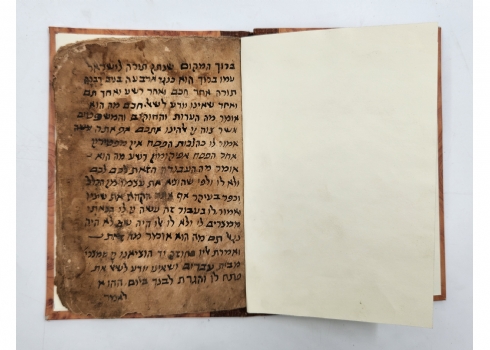 ברוך המקום שנתן תורה לישראל
עמו ברוך הוא כנגד ארבעה בנים דברה
תורה אחד חכם ואחד רשע ואחד תם
ואחד שאינו יודע לשאל חכם מה הוא
אומר מה העדות והחוקים והמשפטים
אשר צוה אלהינו אתכם אף אתה
אמור לו כהלכות הפסח אין מפטירין
אחר הפסח אפיקומן רשע מה הוא
אומר מה העבודה הזאת לכם לכם
ולא לו ולפי שהוציא את עצמו מן הכלל
וכפר בעיקר אף אתה הקהה את שיניו
ואמור לו בעבור זה עשה לי בצאתי
ממצרים לי ולא לו לו היה שם לא היה
נגאל תם מה הוא אומר מה זאת
ואמרת אליו בחוזק יד הוציאנו ממצרים
מבית עבדים ושאינו יודע לשאל את
פתח לו והגדת לבנך ביום ההוא
לאמר